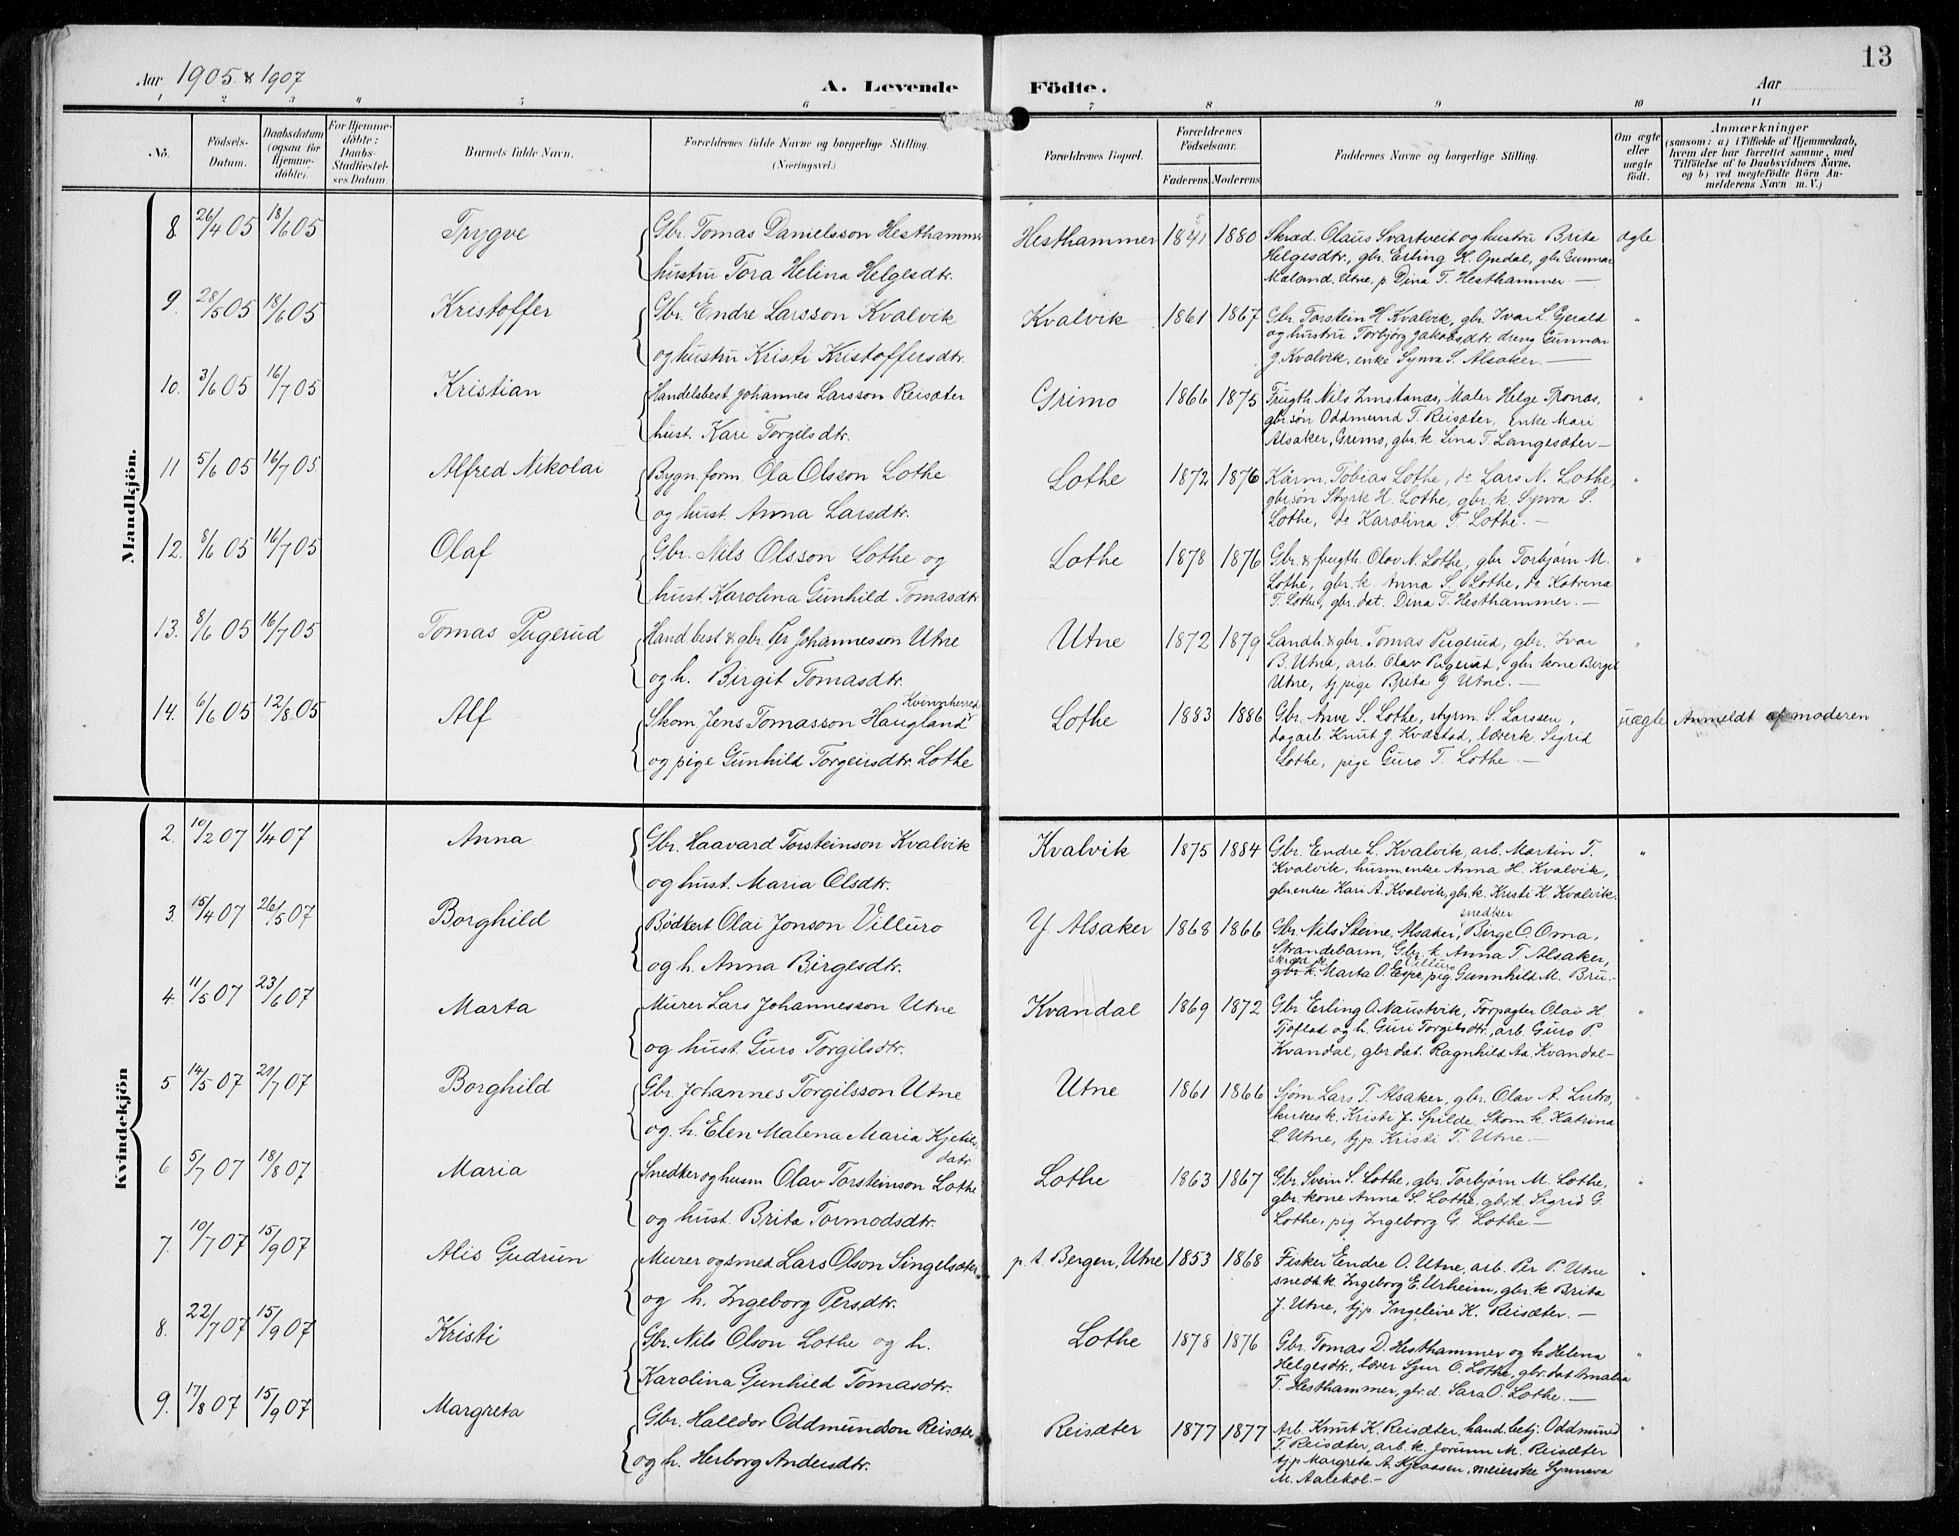 13
Aar 1905 & 1907
A. Levende Födte.
Aar
1 2 3 4 5 6 7 8 9 10 11
No.
Födsels-Datum.
Daabsdatum (ogsaa for Hjemmedöbte).
For Hjemmedöbte: Daabs-Stadfæstelses Datum.
Barnets fulde Navn.
Forældrenes fulde Navne og borgerlige Stilling. (Næringsvei.)
Forældrenes Bopæl.
Forældrenes Födselsaar.
Faderens. Moderens.
Faddernes Navne og borgerlige Stilling.
Om ægte eller uægte födt.
Anmærkninger
(saasom: a) i Tilfælde af Hjemmedaab, hvem der har forrettet samme, med Tilföielse af to Daabsvidners Navne, og b) ved uægtefödte Börn Anmelderens Navn m. V.)
Mandkjön.
8. 26/4 05 18/6 05 Trygve Gbr. Tomas Danielsson Hesthammer Hesthammer 1841 1880 Skræd. Olaus Svartveit og hustru Brita ægte
hustru Tora Helina Helgesdtr. Helgesdtr., gbr. Erling H. Opedal, gbr. Gunnar
Mæland, Utne, p. Dina T. Hesthammer. —
9. 28/5 05 18/6 05 Kristoffer Gbr. Endre Larsson Kvalvik Kvalvik 1861 1867 Gbr. Torstein H. Kvalvik, gbr. Ivar L. Gjerald "
og hustru Kristi Kristoffersdtr. og hustru Torbjørg Jakobsdtr. dreng Gunnar
J. Kvalvik, enke Synva S. Alsaker. —
10. 3/6 05 16/7 05 Kristian Handelsbest. Johannes Larsson Reisæter Grimo 1866 1875 Frugth. Nils Instanæs, Maler Helge Tronæs, "
hust. Kari Torgilsdtr. gbr.søn Oddmund T. Reisæter, enke Mari
Alsaker, Grimo, gbr. k. Lina T. Langesæter —
11 5/6 05 16/7 05 Alfred Nikolai Bygn.form. Ola Olsson Lothe Lothe 1872 1876 Kårm. Tobias Lothe, do Lars N. Lothe, "
og hust. Anna Larsdtr. gbr.søn Styrk H. Lothe, gbr. k. Synva S.
Lothe, do Karolina T. Lothe. —
12. 8/6 05 16/7 05 Olaf Gbr. Nils Olsson Lothe og Lothe 1878 1876 Gbr. & frugth. Olav N. Lothe, gbr Torbjørn M. "
hust. Karolina Gunhild Tomasdtr Lothe, gbr. k. Anna S. Lothe, do Katrina
T. Lothe, gbr. dat. Dina T. Hesthammer. —
13. 8/6 05 16/7 05 Tomas Pugerud Hand.best & gbr. Per Johannesson Utne Utne 1872 1879 Landh. & gbr. Tomas Pugerud, gbr. Ivar "
og h. Birgit Tomasdtr. B. Utne, arb. Olav Pugerud, gbr. kone Birgit
Utne, tj.pige Brita J. Utne. —
14. 6/6 05 12/8 05 Alf Skom. Jens Tomasson Haugland Kvinnherred Lothe 1883 1886 Gbr. Arve S. Lothe, styrm. S. Larssen, uægte Anmeldt af moderen
og pige Gunhild Torgeirsdtr. Lothe dagarb. Knut J. Kvæstad, lærerk. Sigrid
Lothe, pige Guro T. Lothe. —
Kvindekjön
2. 10/2 07 1/4 07 Anna Gbr. Haavard Torsteinson Kvalvik Kvalvik 1875 1884 Gbr. Endre L. Kvalvik, arb. Martin T. "
og hust. Maria Olsdtr. Kvalvik, husm.enke Anna H. Kvalvik,
gbr.enke Kari A. Kvalvik, gbr. k. Kristi K. Kvalvik.
3. 15/4 07 26/5 07 Borghild Bødkert Olai Jonson Villuro Y. Alsaker 1868 1866 Gbr. Nils Steine, Alsaker, snedker Birge O. Oma, "
og h. Anna Birgesdtr. Strandebarm, Gbr. k. Anna T. Alsaker,
gbr. k. Marta O. Espe, pig. Gunnhild M. Bru. —
4. 11/5 07 23/6 07 Marta Murer Lars Johannesson Utne Kvandal 1869 1872 Gbr Erling O. Naustvik, Forpagter Olav H "
og hust. Guro Torgilsdtr. Tjoflot og h. Guri Torgilsdtr., arb. Guro P.
Kvandal, gbr. dat. Ragnhild Aa Kvandal —
5 14/5 07 21/7 07 Borghild Gbr. Johannes Torgilsson Utne Utne 1861 1866 Sjøm. Lars T. Alsaker, gbr. Olav A. Lutro, "
og h. Elen Malena Maria Kjetilsdatr. Kristi J. Spilde, Skom. k. Katrina
L. Utne, tjp. Kristi T. Utne. —
6 5/7 07 18/8 07 Maria Snedker og husm Olav Torsteinson Lothe Lothe 1863 1867 Gbr. Svein S. Lothe, gbr. Torbjørn M. Lothe, "
og hust. Brita Tormodsdtr. gbr. kone Anna S. Lothe, gbr. k. Sigrid G.
Lothe, pig Ingeborg G. Lothe. —
7. 10/7 07 15/9 07 Alis Gudrun Murer og smed Lars Olson Singelsæter, p. t. Bergen, Utne 1853 1868 Fisker Endre O. Utne, arb. Per P. Utne "
og h. Ingeborg Persdtr. snedk.k. Ingeborg E. Urheim, gbr. k. Brita
J. Utne, tjp. Ingeleive K. Reisæter. —
8. 22/7 07 15/9 07 Kristi Gbr. Nils Olson Lothe og h. Lothe 1878 1876 Gbr. Tomas D. Hesthammer og h Helena "
Karolina Gunhild Tomasdtr. Helgesdtr., lærer Sjur O. Lothe, gbr. dat Amalia
T. Hesthammer, gbr. d. Sara O. Lothe. —
9. 17/8 07 15/9 07 Margreta Gbr. Halldor Oddmundson Reisæter Reisæter 1877 1877 Arb. Knut K. Reisæter, hand.betj. Oddmund "
og h. Herborg Andersdtr. T. Reisæter, arb. k. Jorunn M. Reisæter
tjp Margreta A. Kjraasen, meierske Synneva
M. Aalekol. —